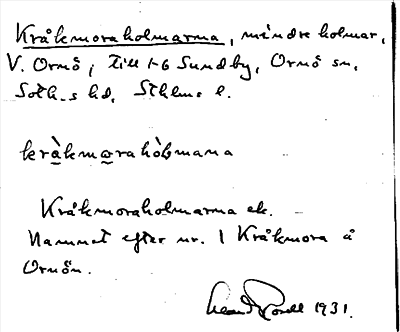 Kråkmoraholmarna, mindre holmar,
V. Ornö, till 1-6 Sundby, Ornö sn,
Soth.s hd, Sthlms l.
kràkmorahòlmana
Kråkmoraholmarna ek.
Namnet efter nr. 1 Kråkmora å
Ornön.
1931.